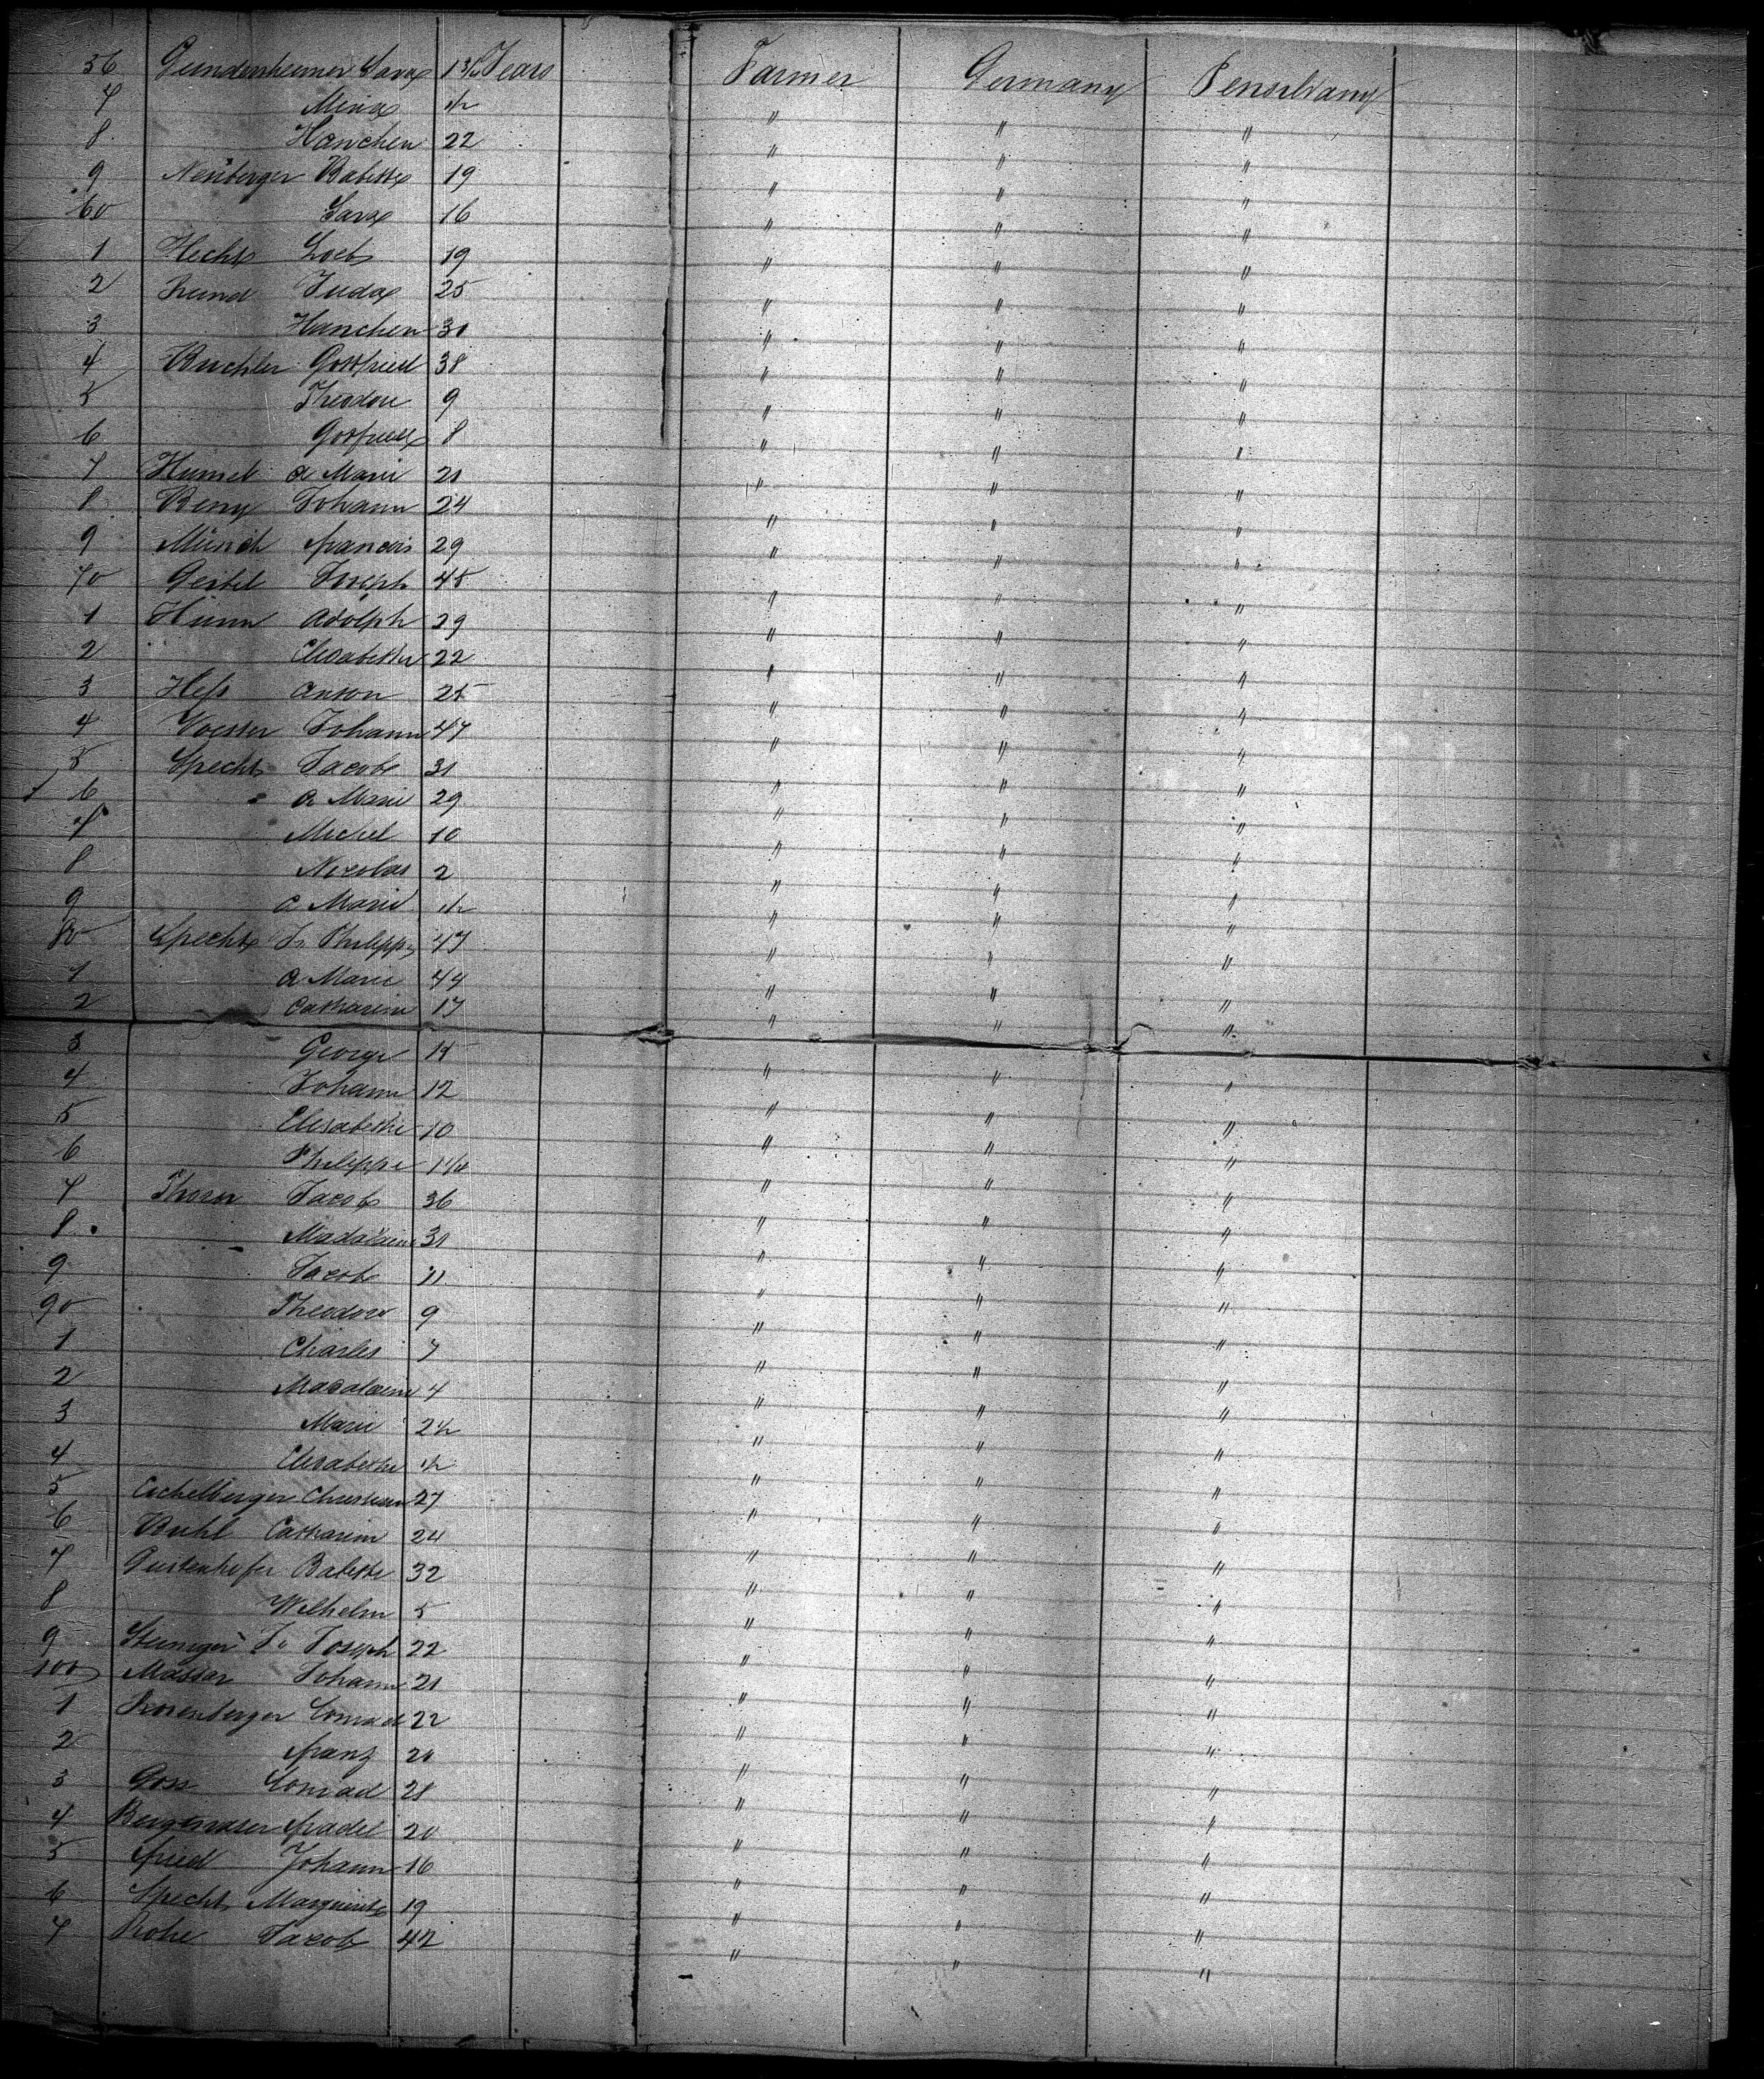 56 Gundersheimer Sara 1 3/4 Years Farmer Germany Pensilvany
7 Mina 1/2 " " "
8 Hanchen 22 " " "
9 Neuberger Babette 19 " " "
60 Sara 16 " " "
1 Hecht Loeb 19 " " "
2 Juda 25 " " "
3 Hanchen 30 " " "
4 Buchler Gottfried 38 " " "
5 Theodore 9 " " "
6 Gottfried 8 " " "
7 Humel a Marie 21 " " "
8 Berry Johann 24 " " "
9 Münch francois 29 " " "
70 Geibel Joseph 45 " " "
1 Hünn Adolph 29 " " "
2 Elisabethe 22 " " "
3 Hess Anton 25 " " "
4 Johann 47 " " "
5 Specht Jacob 31 " " "
6 a Marie 29 " " "
7 Michel 10 " " "
8 Nicolas 2 " " "
9 a Marie 1/2 " " "
80 Specht Philipp 47 " " "
1 a Marie 44 " " "
2 Catharine 17 " " "
3 George 15 " " "
4 Johann 12 " " "
5 Elisabethe 10 " " "
6 Philippe " " "
7 Jacob 36 " " "
8 Madalaine 31 " " "
9 Jacob 11 " " "
90 Theodore 9 " " "
1 Charles 7 " " "
2 Madalaine 4 " " "
3 Marie " " "
4 Elisabethe 1/2 " " "
5 Eichelberger Christian 27 " " "
6 Buhl Catharine 24 " " "
7 Babette 32 " " "
8 Wilhelm 5 " " "
9 Joseph 22 " " "
100 Massar Johann 21 " " "
1 Rosenberger Conrad 22 " " "
2 franz 20 " " "
3 Goss Conrad 28 " " "
4 20 " " "
5 fried Johann 16 " " "
6 Specht Marguerite 19 " " "
7 Rohe Jacob 42 " " "